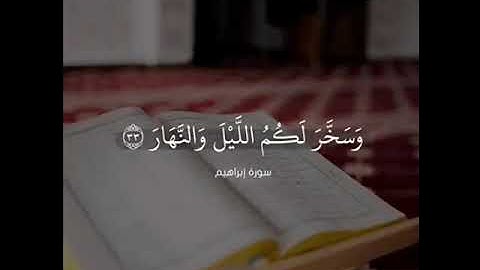 وَسَخَّرَ لَكُمُ اللَّيْلَ وَالنَّهَارَ ۝٣٣
سورة إبراهيم